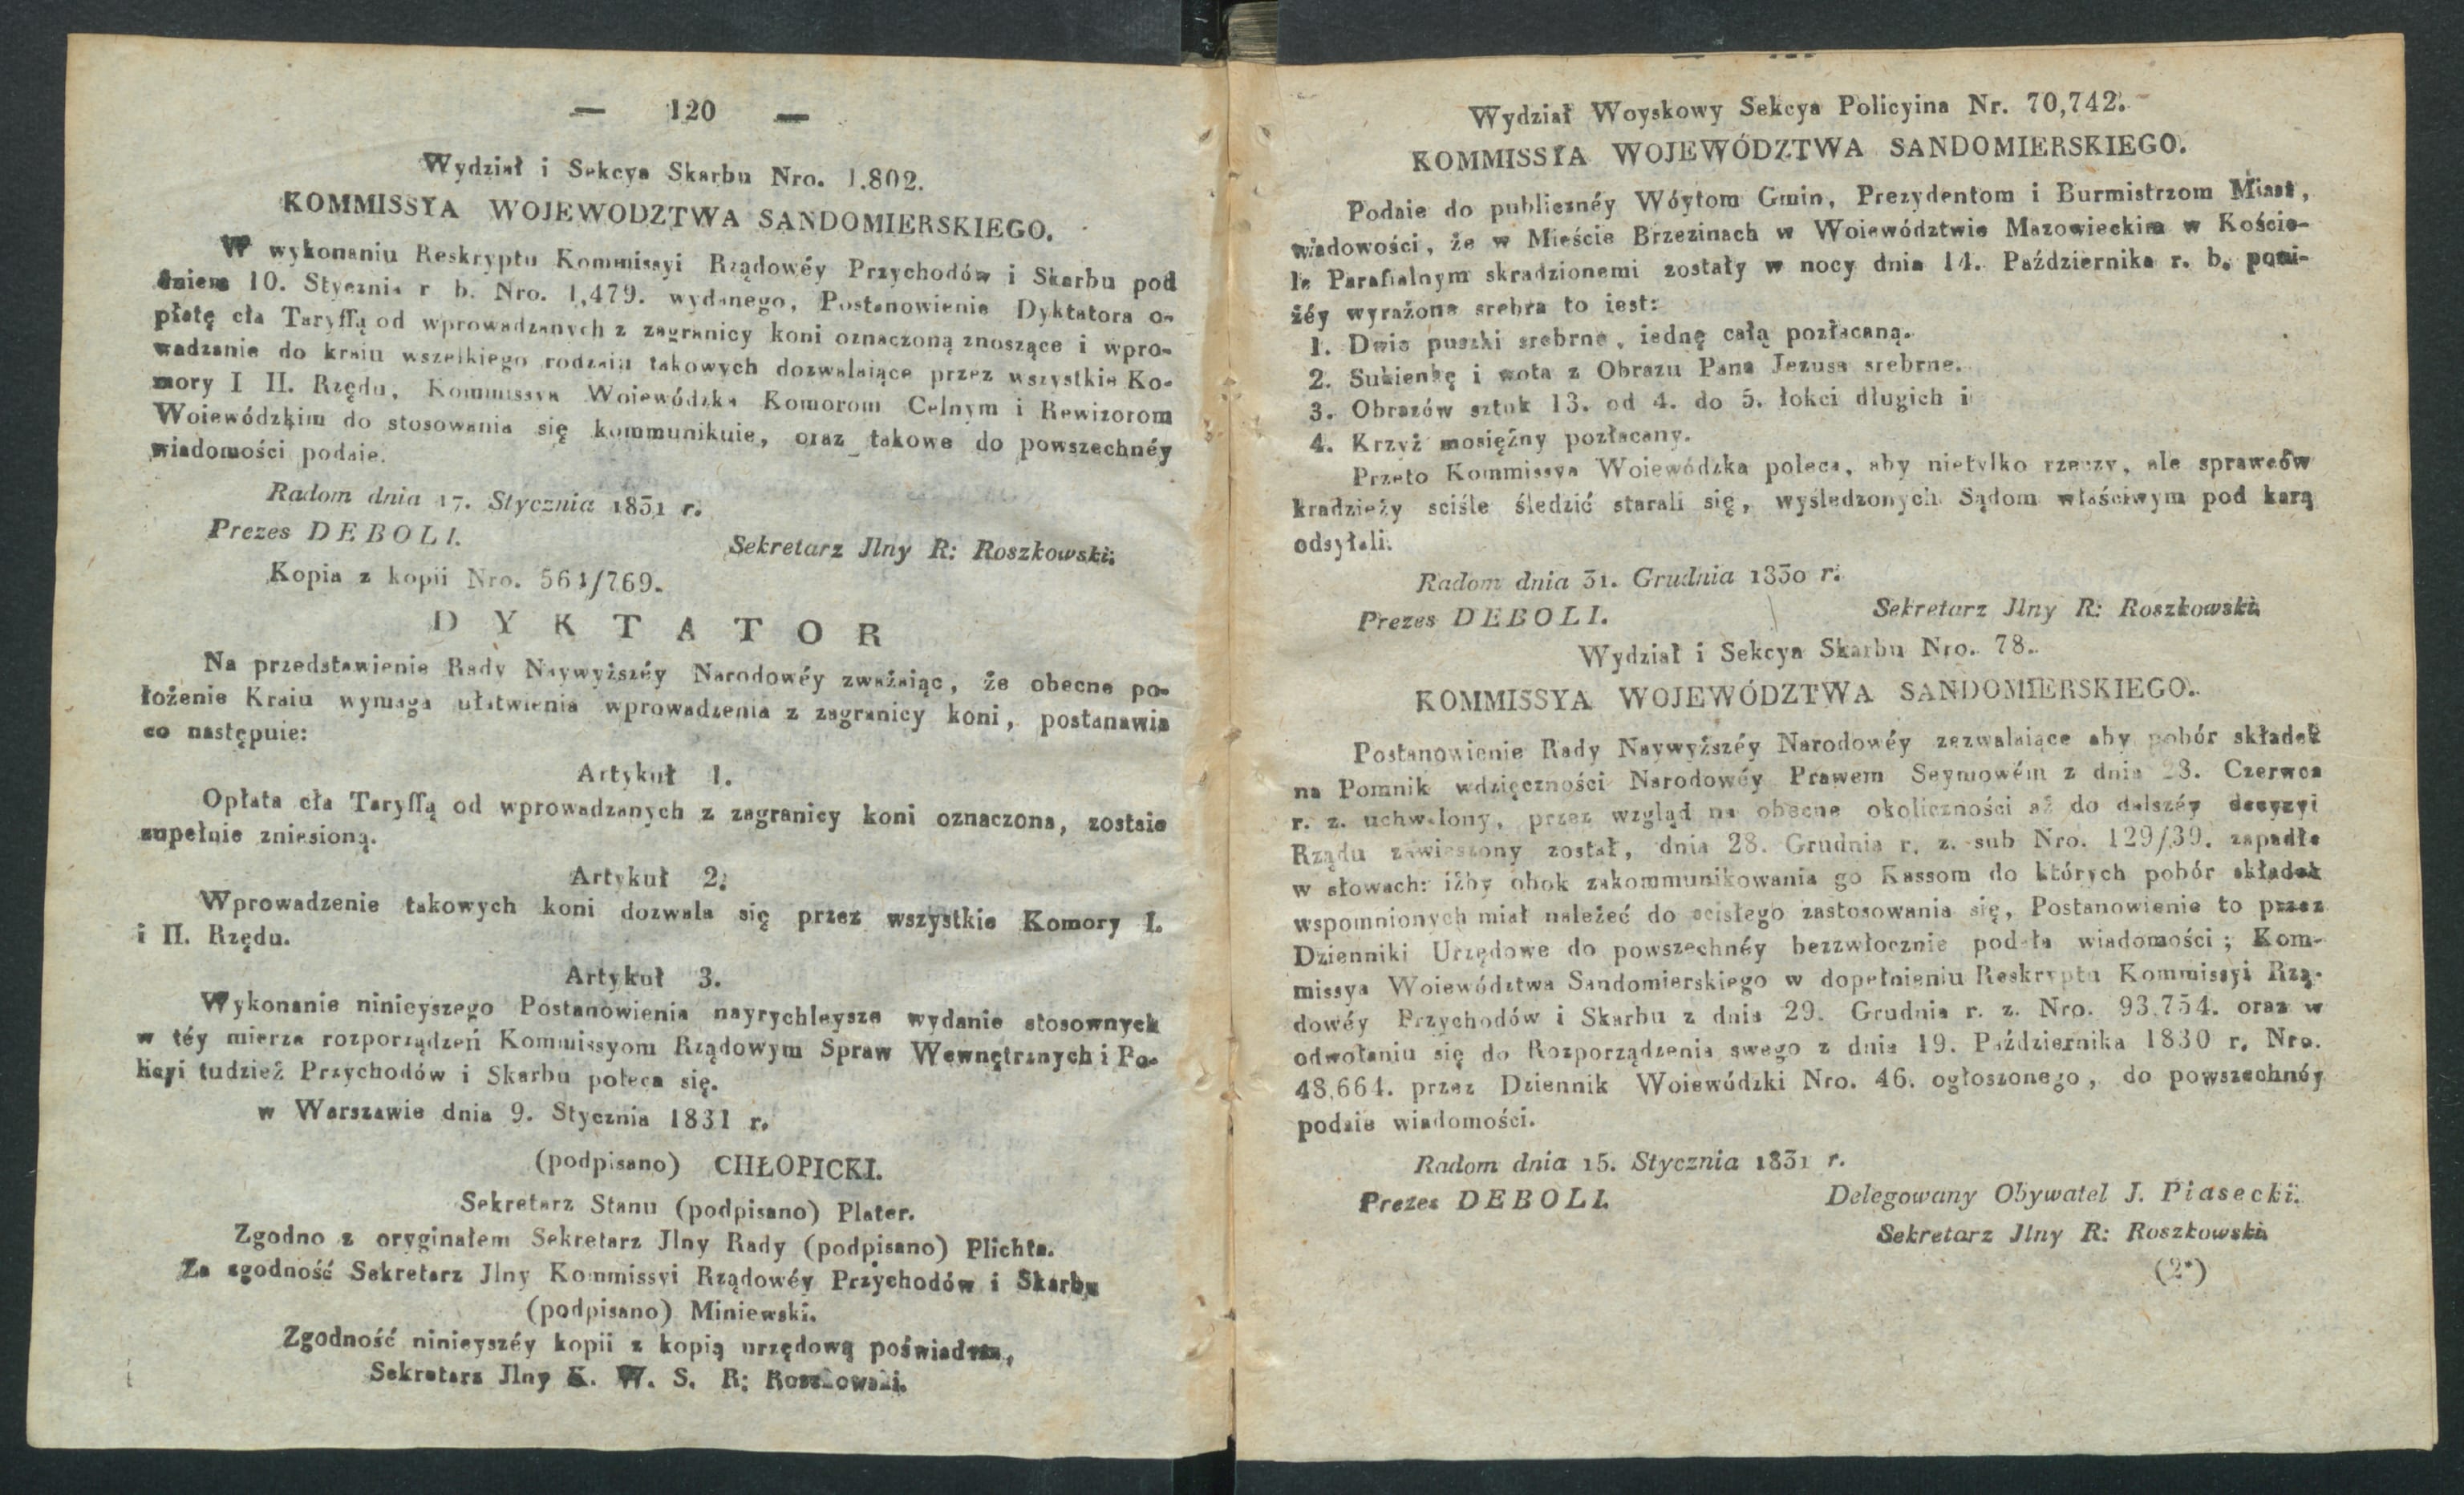 — 120 —
Wydział i Sekcya Skarbu Nro. 1,802.
KOMMISSYA WOJEWODZTWA SANDOMIERSKIEGO.
W wykonaniu Reskryptu Kommissyi Rządowéy Przychodów i Skarbu pod
dniem 10. Stycznia r b. Nro. 1,479. wydanego, Postanowienie Dyktatora o-
płatę cła Taryffą od wprowadzanych z zagranicy koni oznaczoną znoszące i wpro-
wadzanie do kraiu wszelkiego rodzaiu takowych dozwalaiące przez wszystkie Ko-
mory I II. Rzędu, Kommissya Woiewódzka Komorom Celnym i Rewizorom
Woiewódzkim do stosowania się kommunikuie, oraz takowe do powszechnéy
wiadomości podaie.
Radom dnia 17. Stycznia 1831 r.
Prezes DEBOLI.
Sekretarz Jlny R: Roszkowski:
Kopia z kopii Nro. 561/769.
DYKTATOR
Na przedstawienie Rady Naywyższéy Narodowéy zważaiąc, że obecne po-
łożenie Kraiu wymaga ułatwienia wprowadzenia z zagranicy koni, postanawia
co następuie:
Artykuł 1.
Opłata cła Taryffą od wprowadzanych z zagranicy koni oznaczona, zostaie
zupełnie zniesioną.
Artykuł 2.
Wprowadzenie takowych koni dozwala się przez wszystkie Komory I.
i II. Rzędu.
Artykuł 3.
Wykonanie ninieyszego Postanowienia nayrychleysze wydanie stosownych
w téy mierze rozporządzeń Kommissyom Rządowym Spraw Wewnętrznych i Po-
licyi tudzież Przychodów i Skarbu poleca się.
w Warszawie dnia 9. Stycznia 1831 r.
(podpisano) CHŁOPICKI.
Sekretarz Stanu (podpisano) Plater.
Zgodno z oryginałem Sekretarz Jlny Rady (podpisano) Plichta.
Za zgodność Sekretarz Jlny Kommissyi Rządowéy Przychodów i Skarbu
(podpisano) Miniewski.
Zgodność ninieyszéy kopii z kopią urzędową poświadcza,
Sekretarz Jlny K. W. S. R: Roszkowski.
Wydział Woyskowy Sekcya Policyina Nr. 70,742.
KOMMISSYA WOJEWÓDZTWA SANDOMIERSKIEGO.
Podaie do publicznéy Wóytom Gmin, Prezydentom i Burmistrzom Miast,
wiadowości, że w Mieście Brzezinach w Woiewództwie Mazowieckim w Koście-
le Parafialnym skradzionemi zostały w nocy dnia 14. Października r. b. poni-
żéy wyrażone srebra to iest:
1. Dwie puszki srebrne, iednę całą pozłacaną.
2. Sukienkę i wota z Obrazu Pana Jezusa srebrne.
3. Obrazów sztuk 13. od 4. do 5. łokci długich i
4. Krzyż mosiężny pozłacany.
Przeto Kommissya Woiewódzka poleca, aby nietylko rzeczy, ale sprawców
kradzieży sciśle śledzić starali się, wyśledzonych Sądom właściwym pod karą
odsyłali.
Radom dnia 31. Grudnia 1830 r.
Prezes DEBOLI.
Sekretarz Jlny R: Roszkowski.
Wydział i Sekcya Skarbu Nro. 78.
KOMMISSYA WOJEWÓDZTWA SANDOMIERSKIEGO.
Postanowienie Rady Naywyższéy Narodowéy zezwalaiące aby pobór składek
na Pomnik wdzięczności Narodowéy Prawem Seymowém z dnia 28. Czerwca
r. z. uchwalony, przez wzgląd na obecne okoliczności aż do dalszéy decyzyi
Rządu zawieszony został, dnia 28. Grudnia r. z. sub Nro. 129/39. zapadłe
w słowach: iżby obok zakommunikowania go Kassom do których pobór składek
wspomnionych miał należeć do scisłego zastosowania się, Postanowienie to przez
Dzienniki Urzędowe do powszechnéy bezzwłocznie podała wiadomości; Kom-
missya Woiewództwa Sandomierskiego w dopełnieniu Reskryptu Kommissyi Rzą-
dowéy Przychodów i Skarbu z dnia 29. Grudnia r. z. Nro. 93,754. oraz w
odwołaniu się do Rozporządzenia swego z dnia 19. Października 1830 r. Nro.
48,664. przez Dziennik Woiewódzki Nro. 46. ogłoszonego, do powszechnéy
podaie wiadomości.
Radom dnia 15. Stycznia 1831 r.
Prezes DEBOLI.
Delegowany Obywatel J. Piasecki.
Sekretarz Jlny R: Roszkowski.
(2*)